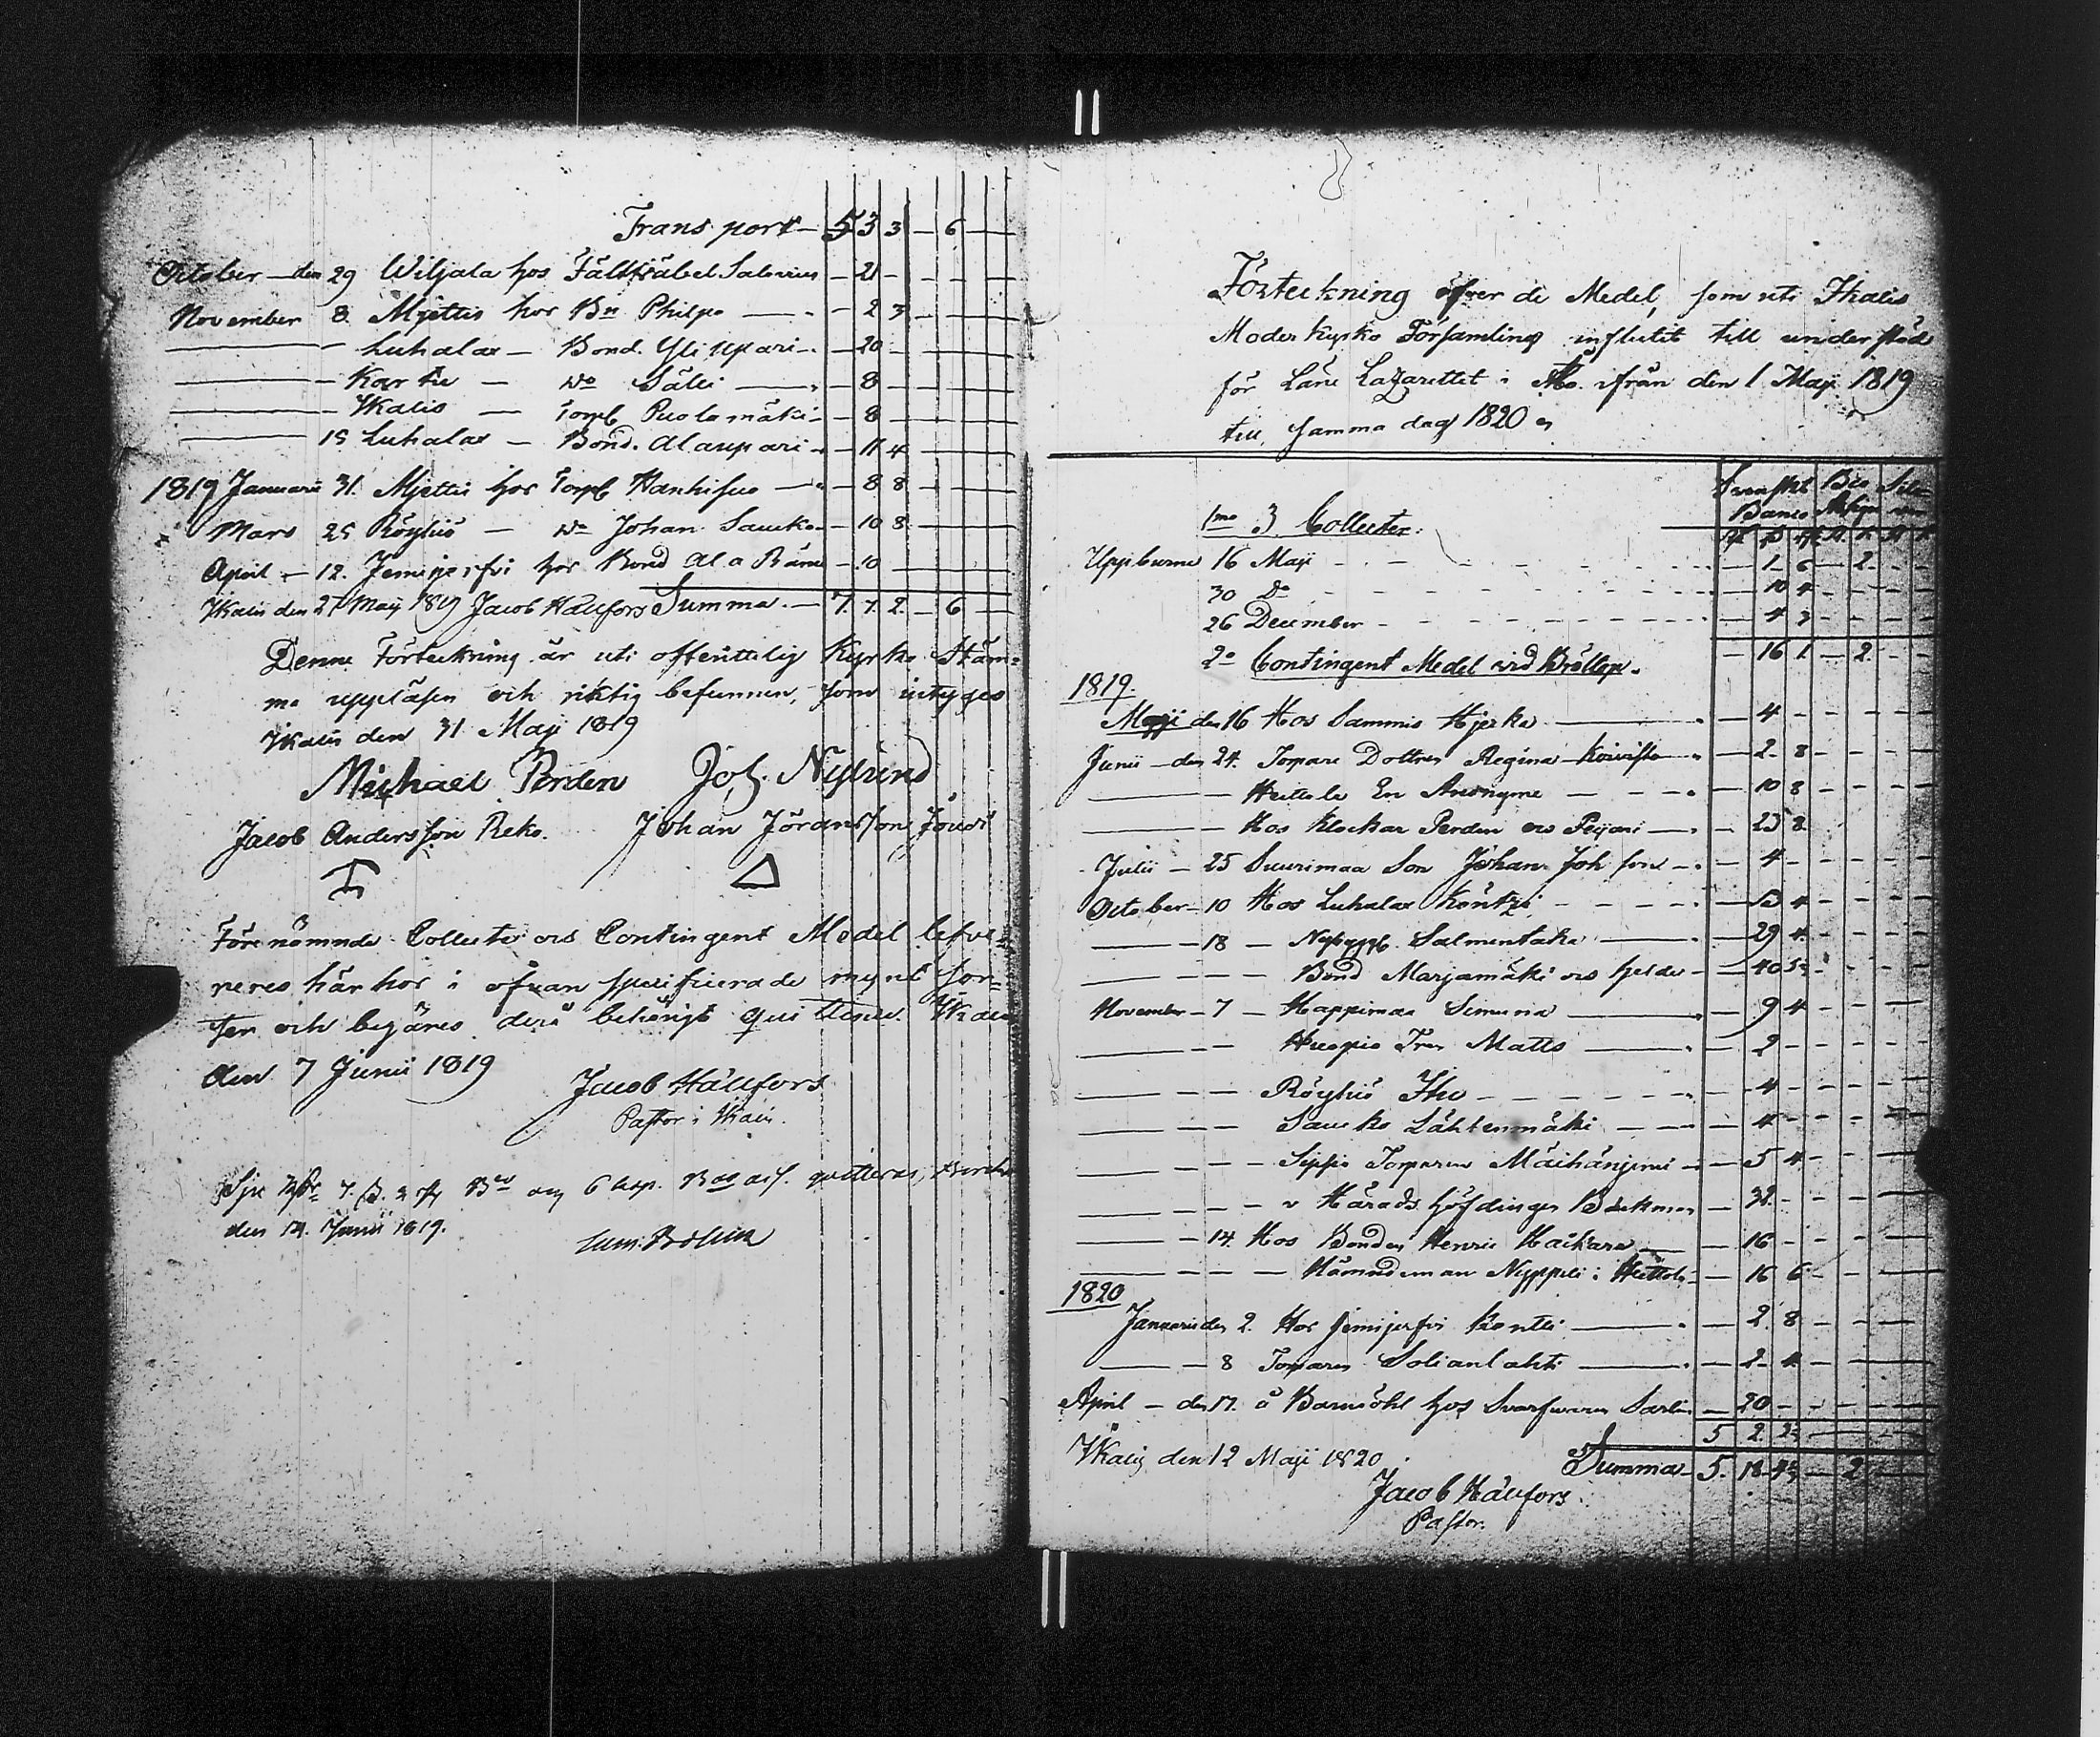 Transport — 5 3 3 — 6 —
October — den 29 Wiljala hos Fältträbel Salovius — 21 —
November 8. Myttis hos Bn Philpo — 2 3
Luhalax — Bond. Yliupari — 20
Kartu — do Säli — 8
Ikalis — Torp. Puolamäki — 8
15 Luhalax — Bond. Alaupari — 11 4
1819 Januarii 31. Myttis hos Torp. Hanhisuo — 8 8
Mars 25 Röyhiö — do Johan Sauko — 10 8
April — 12. Jemijerfvi hos Bond Ala Rämi — 10
Ikalis den 27 Maji 1819 Jacob Hällfors Summa — 7. 7 2. — 6 —
Denna Förteckning är uti offenttelig Kyrko Stäm=
ma uppläsen och riktig befunnen, som intygas
Ikalis den 31 Maji 1819
Michael Perden Joh. Nylund
Jacob Andersson Reko. Johan Jöransson Jousi
Förenämnde Collecter och Contingent Medel lefve=
reres härhos i ofvan specificerade mynt sor=
ter och begäres derå behörigt quittence. Ikalis
den 7 Junii 1819
Jacob Hällfors
Pastor i Ikalis.
7. ß. 2 och 6 kop. quitteras,
den 14. Junii 1819.
Förteckning öfver de Medel, som uti Ikalis
Moderkyrko Församling influtit till understöd
för Läns Lazarettet i Åbo ifrån den 1 Maji 1819
till samma dag 1820
Svenskt Bco
Banco
1mo 3 Collecter.
Uppburne 16 Maji — 1 6 — 2
30 Do — 10 4
26 December — 4 3
— 16 1 — 2.
2o Contingent Medel vid Bröllop.
1819.
Maji den 16 Hos Sammis Hjerka — 4
Junii — den 24. Torpare Dottren Regina Koivisto — 2. 8
Heittola En Anonyme — 10 8
Hos Klockar Perden och Peijari — 23 8
Julii — 25 Suurimaa Son Johan Joh son — 4
October — 10 Hos Luhalax Köntzi
— 18 — Nybygg. Salmentaka — 29 4
Bond Marjamäki och
November — 7 — Happimaa Simuna — 9 4
Huopio Matts — 2
Röyhiö Iho — 4
Sauko Lähteenmäki — 4
Sippi Torparen — 5 4
Härads höfdingen Bäckman — 32.
— 14. Hos Bonden Henric Haikara — 16
Nämndeman Nyppeli i Heittola — 16 6
1820
Januarii den 2. Hos Jemijerfvi Kontti — 2. 8
— 8 Torparen — 2. 4
April — den 17. å Barnsöhl hos Svarfvaren Sarlin — 20
5 2.
Ikalis den 12 Maji 1820
Summa 5. 18 — 2
Jacob Hällfors.
Pastor.